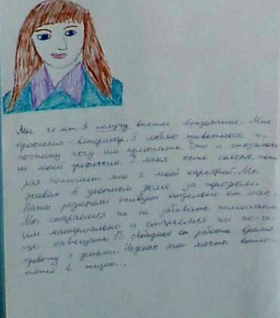 Мне 24 лет. Я получу высшее образование. Моя
профессия - ветеринар. Я люблю животных и
поэтому хочу им помогать. Это и сказалось
на моей профессии. У меня есть сестра, кото
рая помогает мне с моей карьерой. Мы
живём в уютном доме за городом.
Наши родители живут отдельно от нас.
Мы стараемся их не забывать помогаем
им материально и стараемся их по-ча
ще навещать. В свободное от работы время
провожу с детьми. Надеюсь мои мечты вопло-
тятся в жизнь...